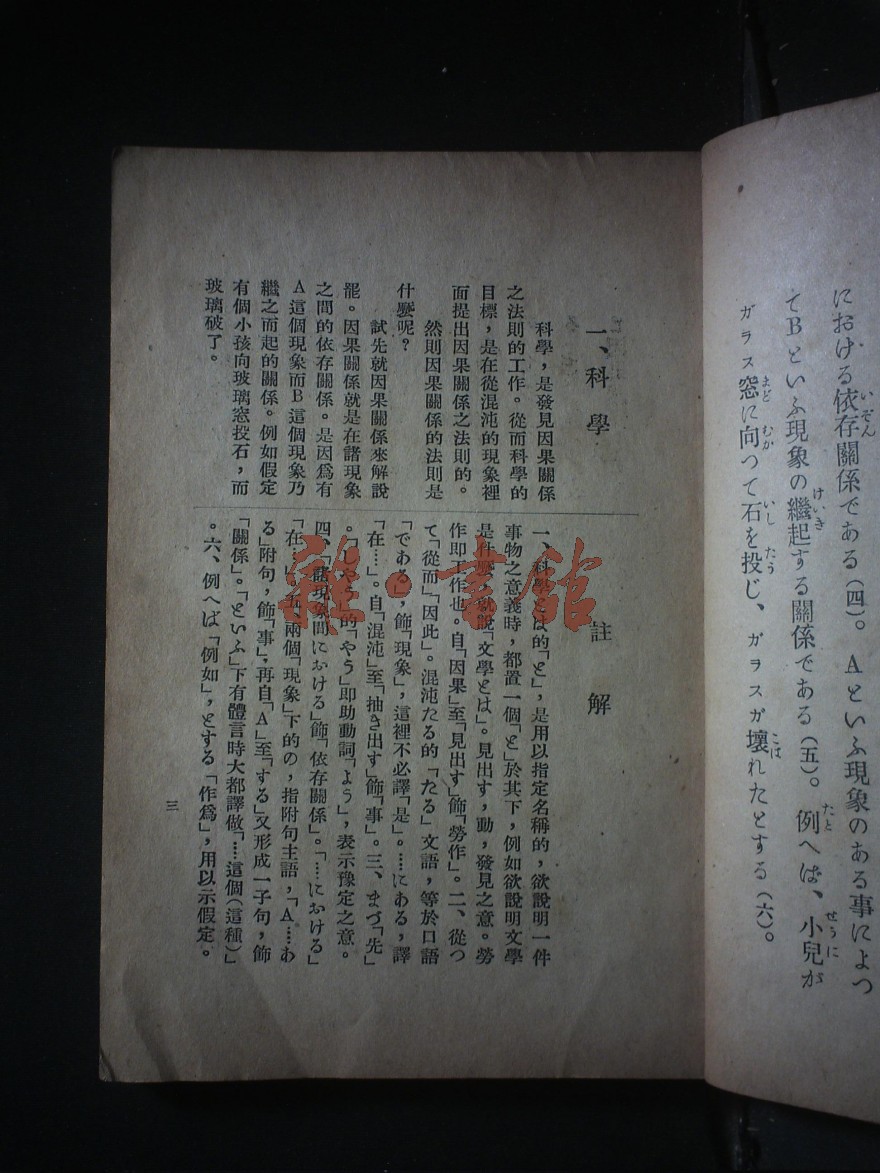 における依存關係である(四)。Aといふ現象のある事によつ
てBといふ現象の繼起する關係である(五)。例へば、小兒が
ガラス窓に向つて石を投じ、ガラスが壞れたとする(六)。
一、科學
科學，是發見因果關係
之法則的工作。從而科學的
目標，是在從混沌的現象裡
面提出因果關係之法則的。
然則因果關係的法則是
什麼呢？
試先就因果關係來解說
罷。因果關係就是在諸現象
之間的依存關係。是因爲有
A這個現象而B這個現象乃
繼之而起的關係。例如假定
有個小孩向玻璃窓投石，而
玻璃破了。
註解
一、科學とは的「と」，是用以指定名稱的，欲說明一件
事物之意義時，都置一個「と」於其下，例如欲說明文學
是什麼，就說「文學とは」。見出す，動，發見之意。勞
作即工作也。自「因果」至「見出す」飾「勞作」。二、從つ
て「從而」「因此」。混沌たる的「たる」文語，等於口語
「である」，飾「現象」，這裡不必譯「是」。……にある，譯
「在……」。自「混沌」至「抽き出す」飾「事」。三、まづ「先」
。「しやう」的「やう」即助動詞「よう」，表示豫定之意。
四、「諸現象間における」飾「依存關係」。「……における」
「在」。五、兩個「現象」下的の，指附句主語，「A……あ
る」附句，飾「事」，再自「A」至「する」又形成一子句，飾
「關係」。「といふ」下有體言時大都譯做「……這個(這種)」
。六、例へば「例如」，とする「作爲」，用以示假定。
三
雜·書館